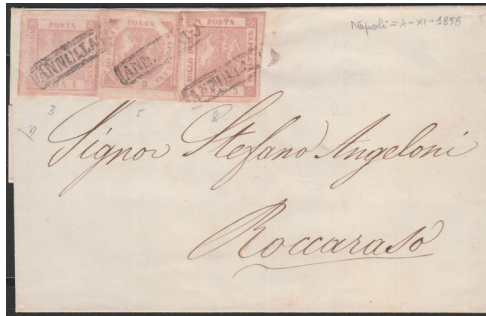 Napoli = 4-XI-1858
POSTA POSTA POSTA
ANNULLA
ANNULLA
3 5 8
Signor Stefano Angeloni
Roccaraso